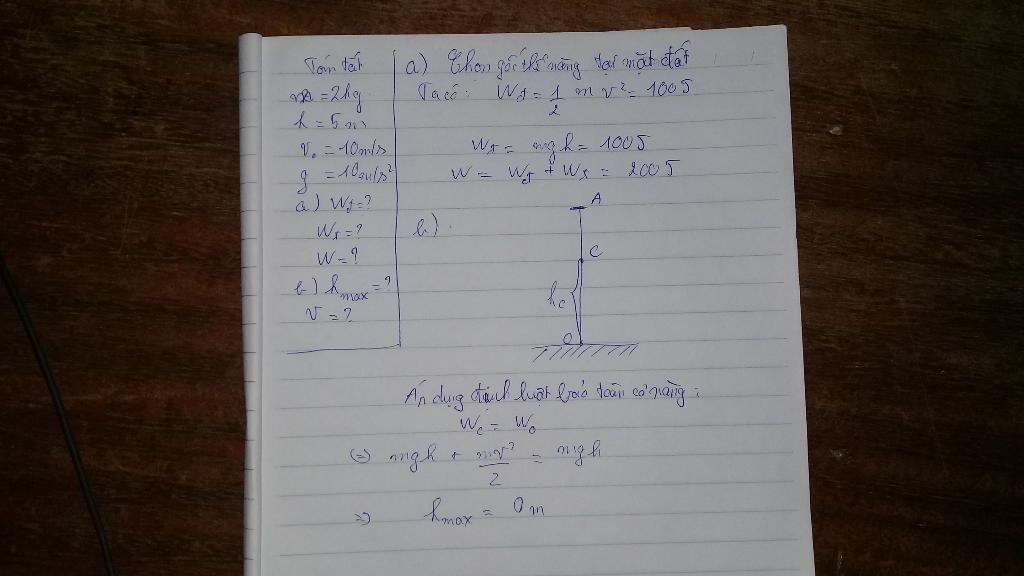 Tóm tắt
m = 2kg
h = 5 m
v₀ = 10m/s
g = 10m/s²
a) Wđ = ?
Wt = ?
W = ?
b) h max = ?
v = ?
a) Chọn gốc thế năng tại mặt đất
Ta có: Wđ = 1/2 m v² = 100J
Wt = mgh = 100J
W = Wđ + Wt = 200J
b).
A
C
hc
O
Áp dụng định luật bảo toàn cơ năng:
Wc = Wo
(=) mgh + mv²/2 = mgh
=) h max = 0 m